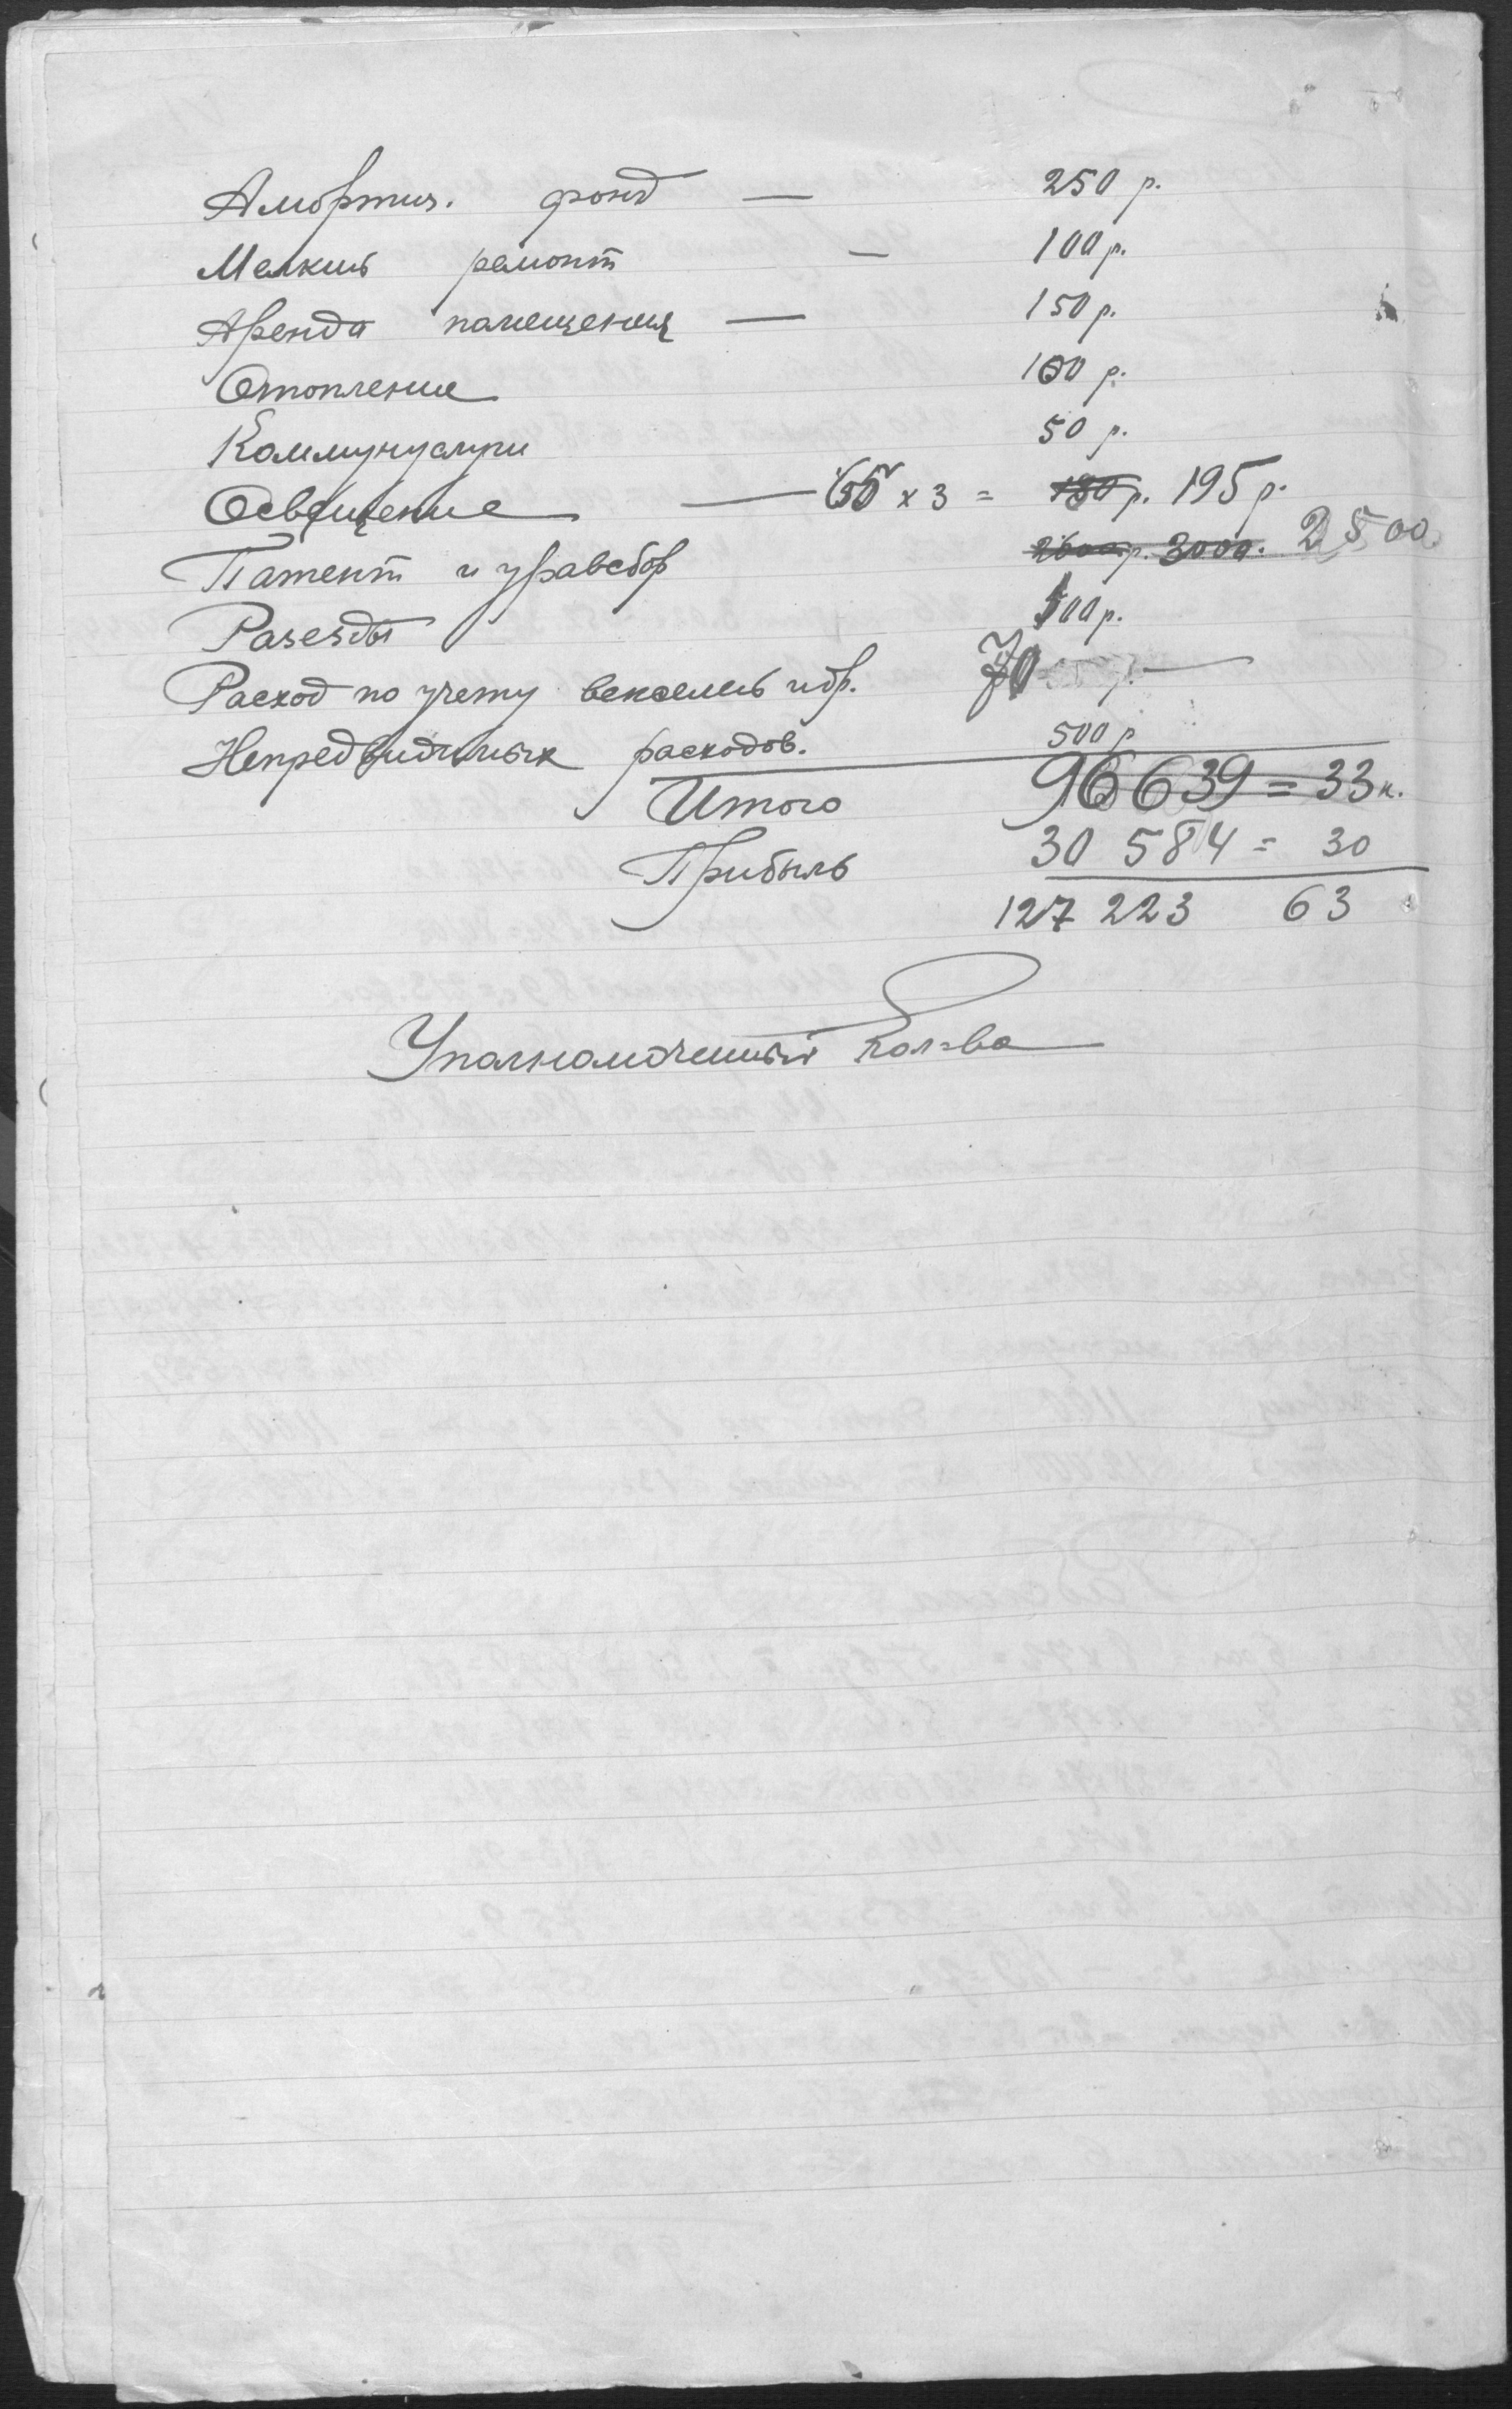 Амортиз. фонд — 250 р.
Мелкий ремонт — 100 р.
Аренда помещения — 150 р.
Отопление 100 р.
Коммунуслуги 50 р.
Освещение — 65 х 3 = 180 р. 195 р.
Патент и уравсбор 2600 р. 3000. 2500
Разезды 500 р.
Расход по учету векселей идр. 70 —
Непредвидимых расходов. 500 р
Итого 96639 = 33 к.
Прибыль 30 584 = 30
127 223 63
Уполномоченный Кол-ва